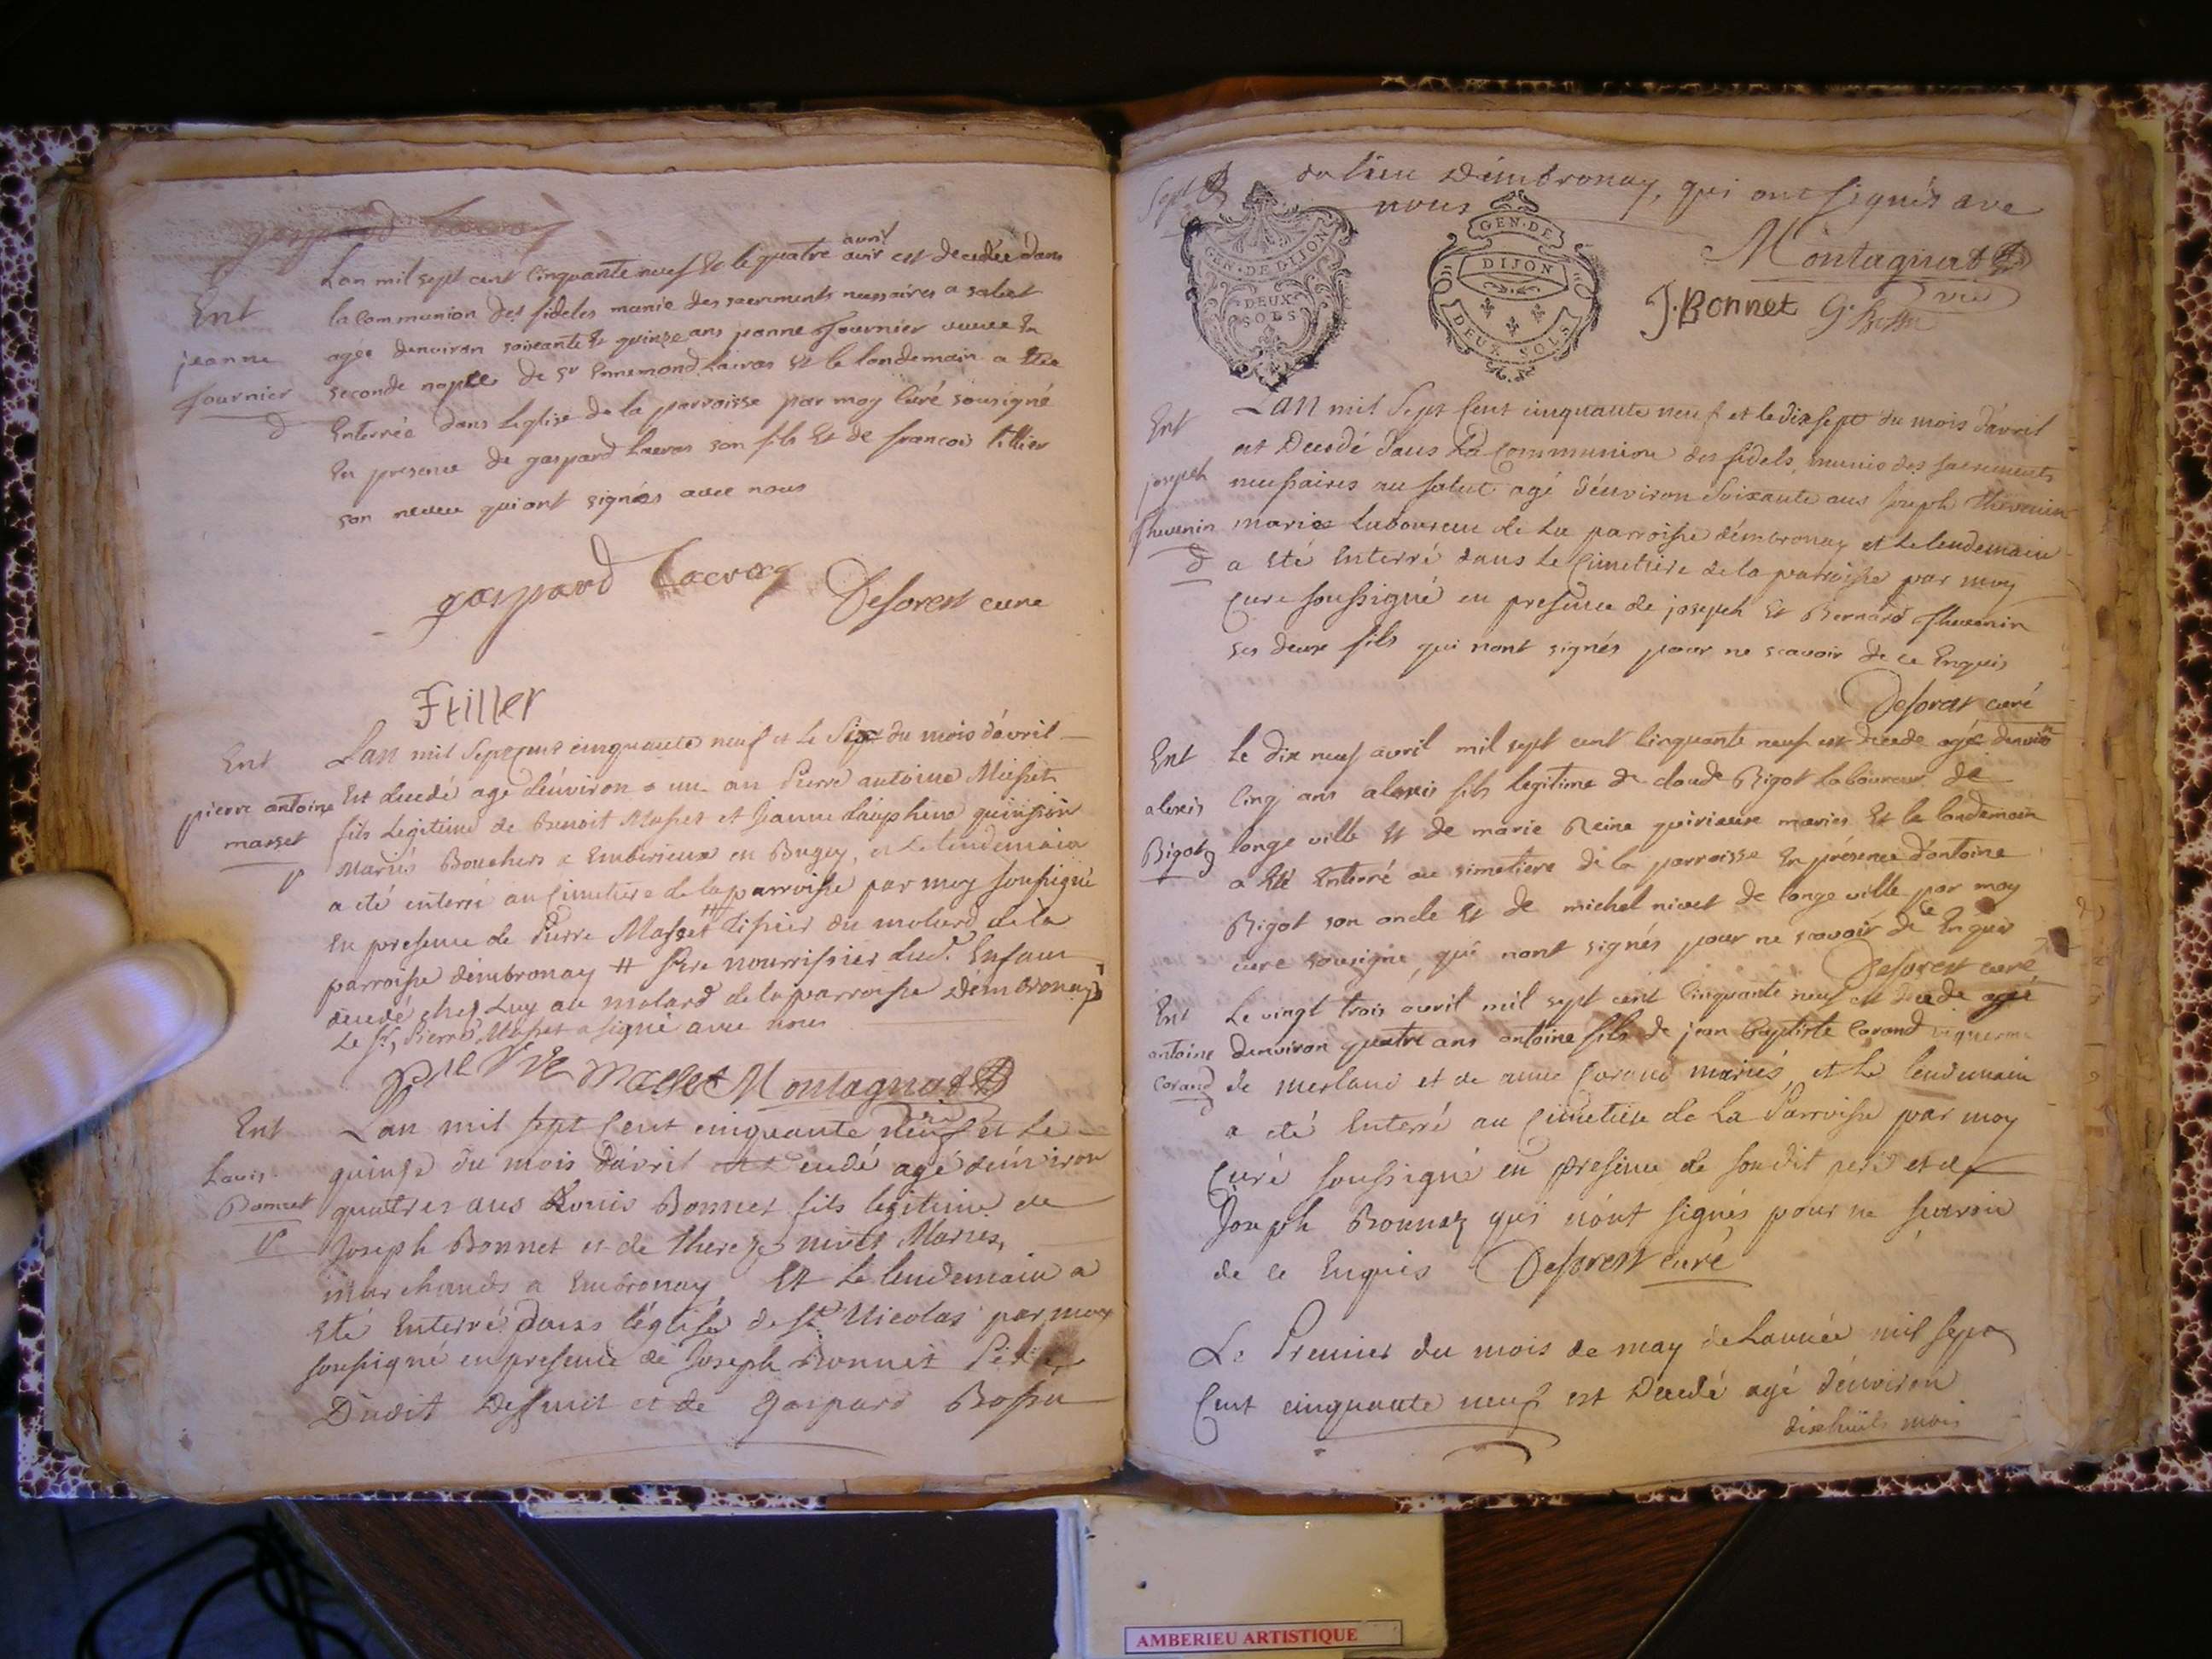 gaspard Lacroz
Lan mil sept cent Cinquante neuf Et le quatre avril est decedée dans
Ent
la Communion des fideles munie des sacrements necessaires a salut
jeanne
fournier
agée denviron soixante Et quinze ans jeanne fournier veuve En
seconde nopces de Sr Ennemond Et le landemain a Etée
Enterrée dans Leglise de la parroisse par moy Curé sousigné
En presence de gaspard son fils Et de francois tillier
son neveu qui ont signés avec nous
gaspard Deforest cure
Ftiller
Ent
pierre antoine
masset
Lan mil Sept Cent cinquante neuf et le Six du mois d'avril
Est decedé agé d'énviron un an Pierre antoine Masset
fils Legitime de Benoit Masset et Jeanne
Mariés Bouchers a Emberieux en Bugey, et Le lendemain
a eté enterré au Cimetiere de la parroisse par moy soussigné
En presence de Pierre Masset # du molard de la
parroisse dembronay # Pere nourrissier dud. Enfant
decedé chez Luy au molard de la parroisse démbronay
Le Sr Pierre Masset a signé avec nous
Masset Montagnat
vic
Ent
Louis
Bonnet
Lan mil sept Cent cinquante neuf et Le
quinze du mois d'avril est decedé agé d'énviron
quatres ans Louis Bonnet fils legitime de
Joseph Bonnet et de thereze nivet Mariés,
marchands a Embronay, Et Le lendemain a
Eté Enterré dans l'église de St Nicolas par moy
soussigné en presence de Joseph Bonnet Pere
Dudit Defunt et de Gaspard Bossu
du lieu Démbronay, qui ont signés ave
nous
GEN·DE DIJON
DEUX
SOLS
GEN·DE
DIJON
DEUX SOLS
Montagnat
vic
J. Bonnet G. Bossu
Ent
joseph
thevenin
Lan mil Sept Cent cinquante neuf et le dix sept du mois d'avril
est Decedé dans La Communion des fidels, munis des sacrements
necessaires au salut agé d'énviron soixante ans Joseph thevenin
marié Laboureur de La parroisse démbronay et Le lendemain
a Eté Enterré dans Le Cimetiere de la parroisse par moy
Curé soussigné en presence de joseph Et Bernard thevenin
ses deux fils qui nont signés pour ne scavoir de ce Enquis
Deforest curé
Ent
alexis
Bigot
Le dix neuf avril mil sept cent Cinquante neuf est decede agé denviron
Cinq ans alexis fils legitime de claude Bigot Laboureur de
longe ville Et de marie Reine mariés Et le landemain
a Eté Enterré au simetiere de la parroisse En présence d'antoine
Bigot son oncle Et de michel nivet de longe ville par moy
cure sousigné, qui nont signés pour ne scavoir de ce Enquis
Deforest curé
Ent
antoine
Corand
Le vingt trois avril mil sept cent Cinquante neuf est decede agé
denviron quatre ans antoine fils de jean Baptiste Corand
de merland et de anne Corand mariés, et Le lendemain
a eté Enterré au Cimetiere de La Parroisse par moy
Curé soussigné en presence de son dit pere et de
Joseph Bonnet qui n'ont signés pour ne scavoir
de ce Enquis Deforest curé
Le Premier du mois de may de Lannée mil sept
Cent cinquante neuf est Decedé agé d'énviron
dixhuit mois
AMBERIEU ARTISTIQUE